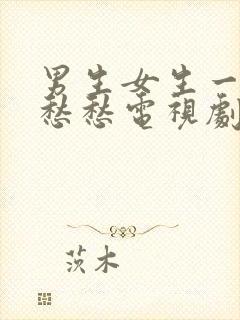 男生女生一
愁愁電視劇
茨木